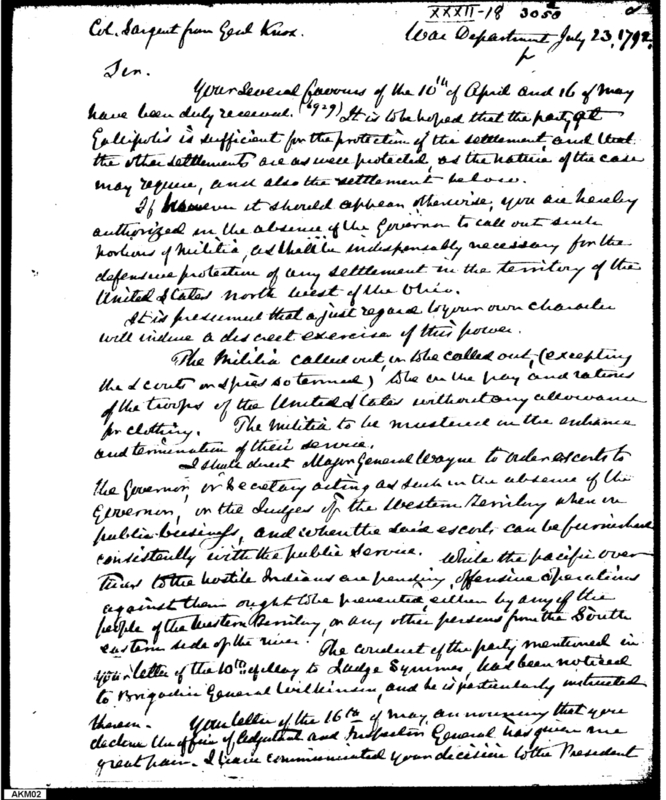 XXXII-18 3050
Col. Sargent from Genl Knox.
War Department July 23, 1792.
Sir.
Your several favours of the 10th of April and 16 of May
have been duly received. (1929) It is to be hoped that the party at
Gallipolis is sufficient for the protection of the settlement and that
the other settlements are as well protected, as the nature of the case
may require, and also the settlement below.
If however it should appear otherwise, you are hereby
authorized in the absence of the Governor to call out such
portions of militia, as shall be indispensably necessary for the
defensive protection of any settlement in the territory of the
United States north west of the Ohio.
It is presumed that a just regard to your own character
will induce a discreet exercise of this power.
The Militia called out, or to be called out, (excepting
the scouts or spies so termed) to be on the pay and rations
of the troops of the United States without any allowance
for clothing. The militia to be mustered on the entrance
and termination of their service.
I shall direct Major General Wayne to order escorts to
the Governor, or Secretary acting as such in the absence of the
Governor, or the Judges of the Western Territory when on
public business, and when the said escorts can be furnished
consistently with the public service. While the pacific over
tures to the hostile Indians are pending, offensive operations
against them ought to be prevented, either by any of the
people of the Western Territory, or any other persons from the South
eastern side of the river. The conduct of the party mentioned in
your letter of the 10th of May to Judge Symmes, has been noticed
to Brigadier General Wilkinson, and he is particularly instructed
therein. Your letter of the 16th of May, announcing that you
decline the office of Adjutant and Inspector General has given me
great pain. I have communicated your decision to the President
AKM02